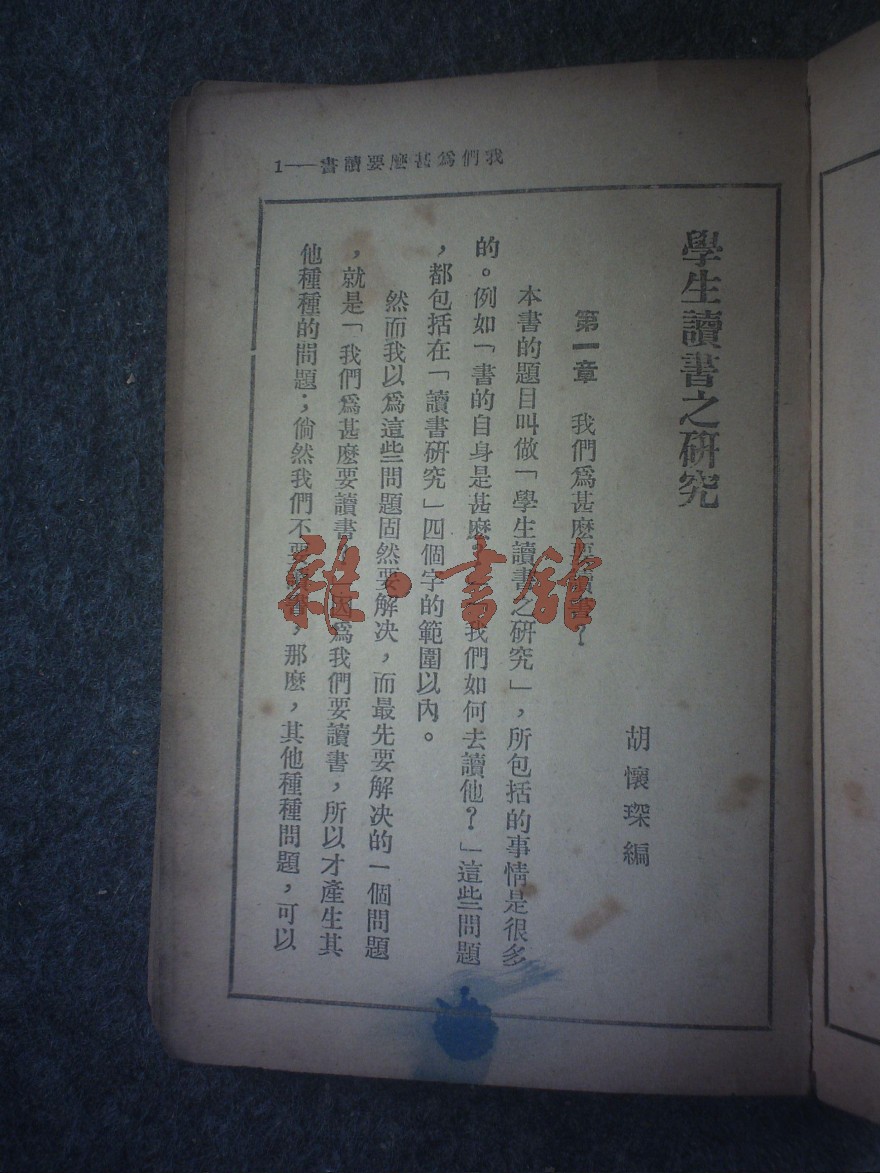 我們爲甚麽要讀書——1
學生讀書之研究
胡懷琛編
第一章 我們爲甚麽要讀書？
本書的題目叫做「學生讀書之研究」，所包括的事情是很多
的。例如「書的自身是甚麽 我們如何去讀他？」這些問題
，都包括在「讀書研究」四個字的範圍以內。
然而我以爲這些問題固然要解决，而最先要解决的一個問題
，就是「我們爲甚麽要讀書 因爲我們要讀書，所以才產生其
他種種的問題；倘然我們不要 書，那麽，其他種種問題，可以
雜·書館